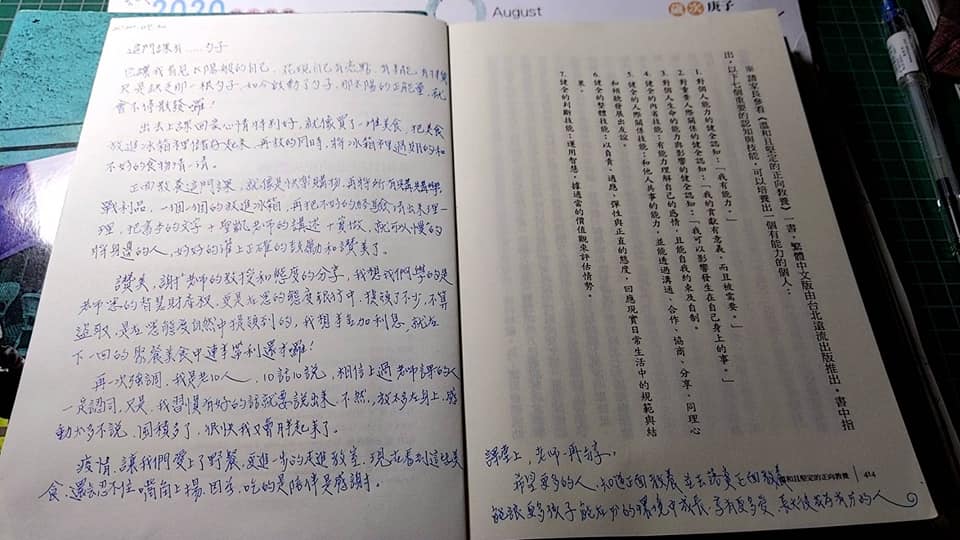 2020
August
庚子
這門課有……勺子
也讓我看見太陽般的自己,發現自己有亮點、有才能、有
只是缺乏那一根勺子,如今啟動了勺子,那太陽的正能量,就
會不停散發囉!
出去上課回家心情特別好,就像買了一堆美食,把美食
放進冰箱裡儲存起來,再放的同時,將冰箱裡過期的和
不好的食物清一清。
正向教養這門課,就像是快樂購物,再將所有
戰利品,一個一個的放進冰箱,再把不好的經驗清出來理一
理,把書本的文字+ 老師的講述+實做,就可以慢慢的
將身邊的人,好好的灌上正確的鼓勵和讚美了。
讚美、謝謝老師的教授和態度的分享,我想我們學的是
老師您的智慧財產權,更是在您的態度執行中,摸頭了不少,不算
盜取,是在您態度自然中摸領到的,我想 加利息,就在
下一回的聚餐美食中連本帶利還才囉!
再一次強調,我是老10人,10話10說,相信上過老師課的人
一定認同,又是,我習慣所好的話就要說出來,不然,放太多在身上,感
動太多不說,囤積多了,很快我又會胖起來了。
疫情,讓我們愛上了野餐,更進一步的走進教室,現在看到這些美
食,還忍不住嘴角上揚,因為,吃的是陪伴是感謝。
※請家長參看《溫和且堅定的正向教養》一書,繁體中文版由台北遠流出版推出。書中指
出,以下七個重要的認知與技能,可以培養出一個有能力的個人:
1. 對個人能力的健全認知:「我有能力。」
2. 對重要人際關係的健全認知:「我的貢獻有意義,而且被需要。」
3. 對個人生命的能力與影響的健全認知:「我可以影響發生在自己身上的事。」
4. 健全的內省技能:有能力理解自己的感情,且能自我約束及自制。
5. 健全的人際關係技能:和他人共事的能力,並能透過溝通、合作、協商、分享、同理心
和傾聽發展出友誼。
6. 健全的整體技能:以自責、適應、彈性與正直的態度,回應現實日常生活中的規範與結
果。
7. 健全的判斷技能:運用智慧,據適當的價值觀來評估情勢。
課堂上,老師一再分享,
希望更多的人,知道正向教養 正向教養
溫和且堅定的正向教養 414
能讓更多孩子能在 的環境中成長,享有更多愛,長大後成為 的人